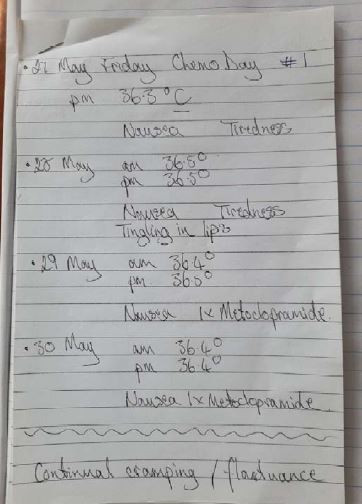 • 27 May Friday Chemo Day #1
pm 36.3° C
Nausea Tiredness
• 28 May am 36.5°
pm 36.5°
Nausea Tiredness
Tingling in lips
• 29 May am 36.4°
pm 36.5°
Nausea 1x Metoclopramide.
• 30 May am 36.4°
pm 36.4°
Nausea 1x Metoclopramide.
Continual cramping /